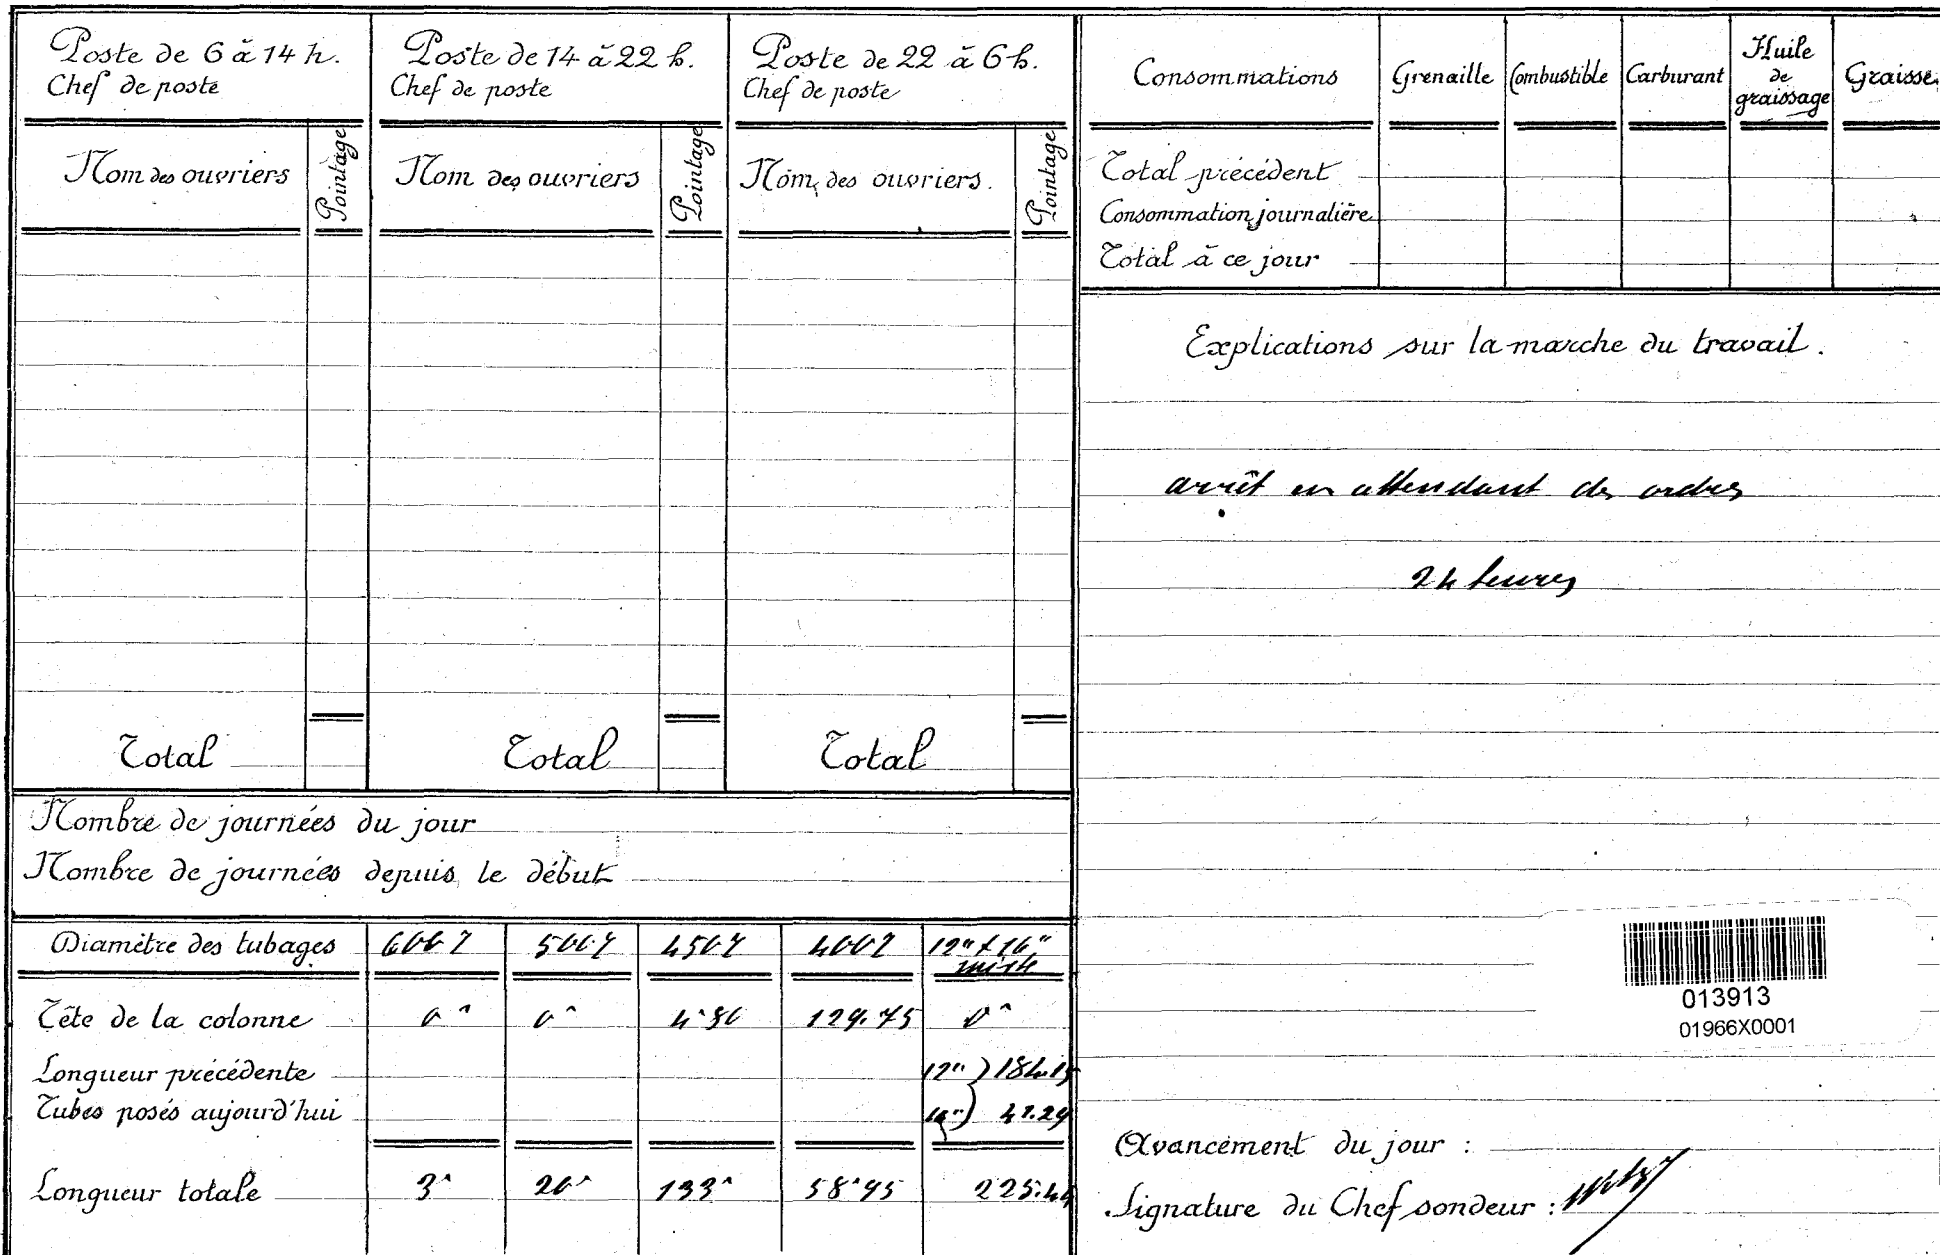 Poste de 6 à 14 h.
Chef de poste
Nom des ouvriers
Pointage
Total
Poste de 14 à 22 h.
Chef de poste
Nom des ouvriers
Pointage
Total
Poste de 22 à 6 h.
Chef de poste
Nom des ouvriers.
Pointage
Total
Nombre de journées du jour
Nombre de journées depuis le début
Diamètre des tubages
Tête de la colonne 0ᵐ 0ᵐ 129.75 0ᵐ
Longueur précédente 12")
Tubes posés aujourd'hui 41.29
Longueur totale 3ᵐ 20ᵐ 133ᵐ 58ᵐ95 225.44
Consommations Grenaille Combustible Carburant Huile de graissage Graisse
Total précédent
Consommation journalière
Total à ce jour
Explications sur la marche du travail.
arrêt en attendant des ordres
24 heures
013913
01966X0001
Avancement du jour :
Signature du Chef sondeur :